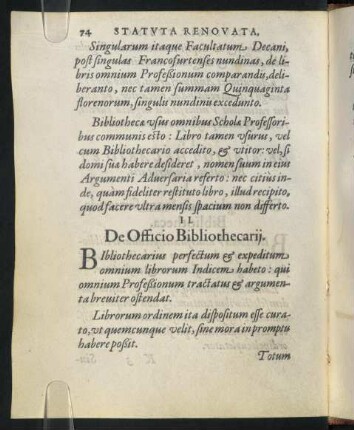 74 STATVTA RENOVATA.
Singularum itaque Facultatum Decani,
post singulas Francofurtenses nundinas, de li-
bris omnium Professionum comparandis, deli-
beranto, nec tamen summam Quinquaginta
florenorum, singulis nundinis excedunto.
Bibliothecæ vsus omnibus Scholæ Professori-
bus communis esto: Libro tamen vsurus, vel
cum Bibliothecario accedito, & vtitor: vel, si
domi sua habere desideret, nomen suum in eius
Argumenti Adversaria referto: nec citius in-
de, quàm fideliter restituto libro, illud recipito,
quod facere vltra mensis spacium non differto.
II
De Officio Bibliothecarij.
BIbliothecarius perfectum & expeditum
omnium librorum Indicem habeto: qui
omnium Professionum tractatus & argumen-
ta breviter ostendat.
Librorum ordinem ita dispositum esse cura-
to, vt quemcunque velit, sine mora in promptu
habere possit.
Totum